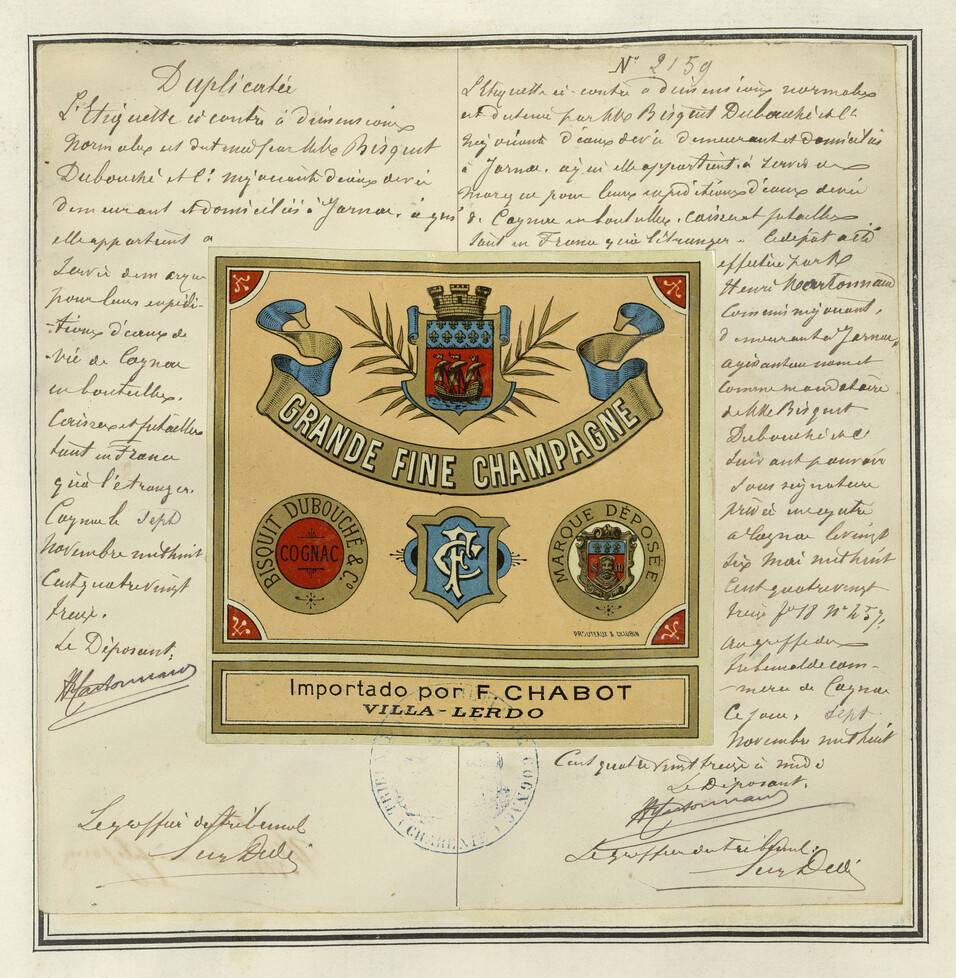 Duplicata
L'Etiquette ci contre à dimensions
Normales est detenue par MM. Bisquit
Dubouché et Cie négociants d'eaux de vie
demeurant et domiciliés à Jarnac, à qui
elle appartient à
servir de marque
pour leurs expédi-
tions d'eaux de
vie de Cognac
en bouteilles,
Caisses et futailles
tant en France
qu'à l'étranger.
Cognac le sept
Novembre mil huit
Cent quatre vingt
treize.
Le Déposant,
Le greffier du tribunal
N° 2159
L'Etiquette ci-contre à dimensions normales
est detenue par MM. Bisquit Dubouché et Cie
négociants d'eaux de vie demeurant et domiciliés
à Jarnac, à qui elle appartient à servir de
marque pour leurs expéditions d'eaux de vie
de Cognac en bouteilles, caisses et futailles
tant en France qu'à l'étranger. Le dépôt a été
effectué par M.
Henri
Commis négociant,
demeurant à Jarnac,
agissant au nom et
comme mandataire
de MM. Bisquit
Dubouché et Cie
suivant pouvoir
sous signature
privée
à Cognac le vingt
six mai mil huit
cent quatre vingt
treize fo 18 No
au greffe du
tribunal de com-
-merce de Cognac
Ce jour, sept
Novembre mil huit
Cent quatre vingt treize à midi
Le Déposant,
Le greffier du tribunal,
GRANDE FINE CHAMPAGNE
BISQUIT DUBOUCHÉ & Co
COGNAC
MARQUE DÉPOSÉE
PROUTEAUX & CHAUBIN
Importado por F. CHABOT
VILLA-LERDO